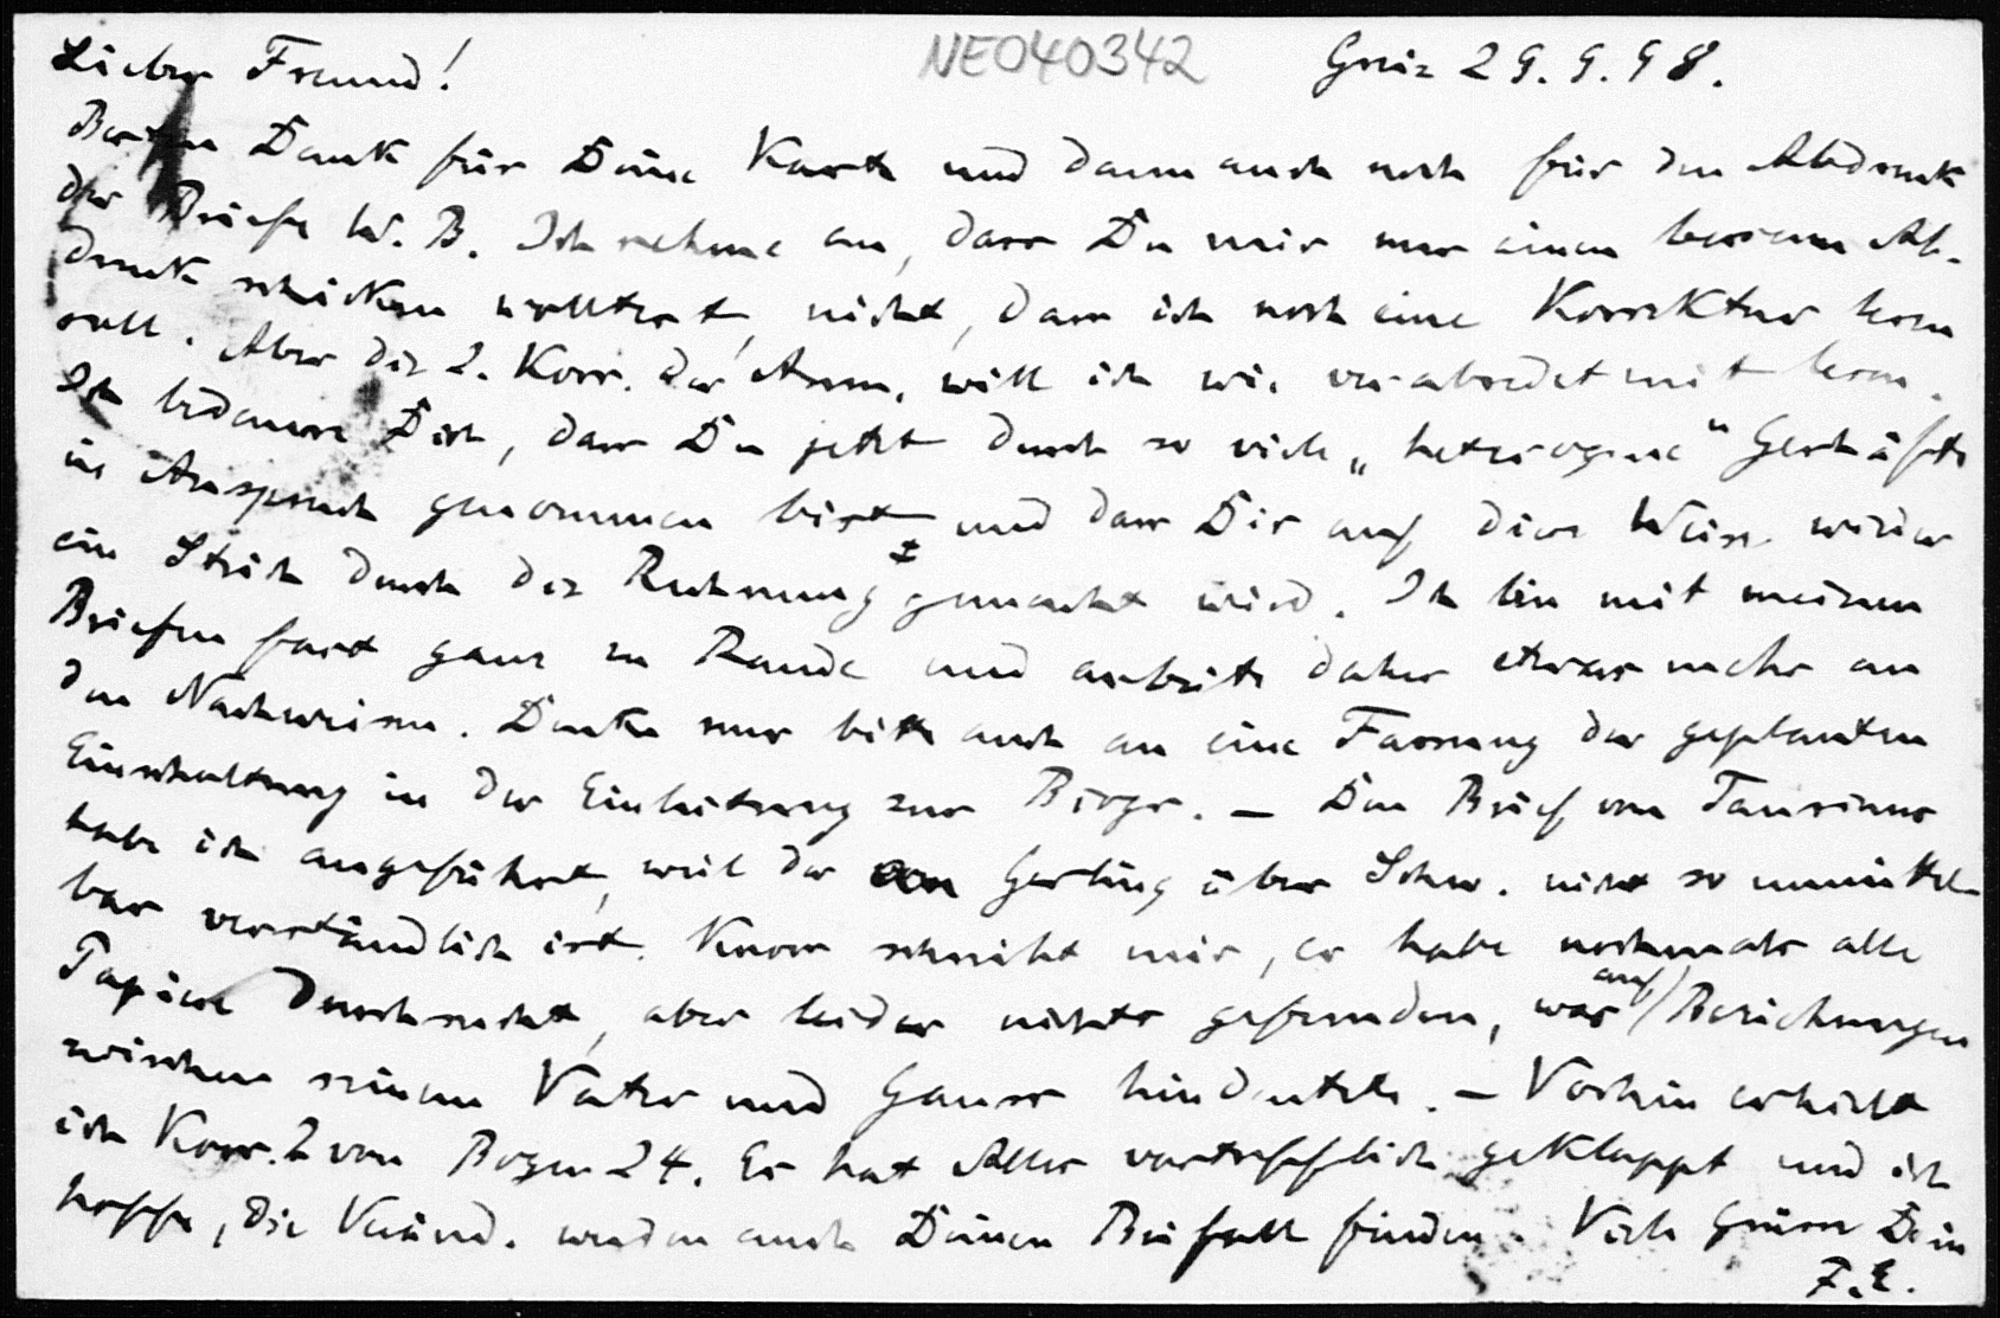 Lieber Freund! NE040342 Greiz 29.9.98.
Besten Dank für Deine Karte und dann auch noch für den Abdruck
der Briefe W. B. Ich nehme an, dass Du mir nur einen besseren Ab-
druck schicken wolltest, nicht, dass ich noch eine Korrektur lesen
soll. Aber die 2. Korr. der Anm. will ich wie verabredet mit lesen.
Ich bedaure Dich, dass Du jetzt durch so viele „heterogene“ Geschäfte
in Anspruch genommen bist und dass Dir auf diese Weise wieder
ein Strich durch die Rechnung gemacht wird. Ich bin mit meinen
Briefen fast ganz zu Rande und arbeite daher etwas mehr an
den Nachweisen. Denke nur bitte auch an eine Fassung der geplanten
Einschaltung in der Einleitung zur Biogr. — Den Brief von Taurinus
habe ich angeführt, weil der an Gerling über Schw. nicht so unmittel-
bar verständlich ist. Knorr schreibt mir, er habe nochmals alle
Papiere durchsucht, aber leider nichts gefunden, was auf Beziehungen
zwischen seinem Vater und Gauss hindeutete. — Vorhin erhielt
ich Korr. 2 von Bogen 24. Es hat Alles vortrefflich geklappt und ich
hoffe, die Veränd. werden auch Deinen Beifall finden. Viele Grüsse Dein
F. E.